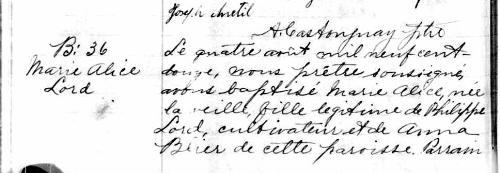 Joseph Miretil
A. Castonguay ptre
B: 36
Marie Alice
Lord
Le quatre août mil neuf cent
douze, nous prêtre soussigné,
avons baptisé Marie Alice, née
la veille, fille legitime de Philippe
Lord, cultivateur et de Anna
Brier de cette paroisse. Parrain